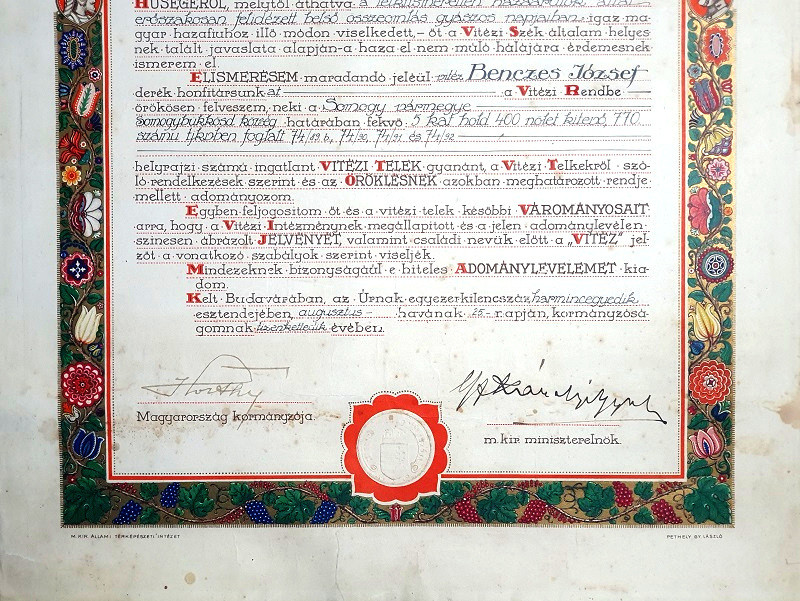 HŰSÉGÉRŐL, mélytől áthatva a lelkiismeretlen hazaárulók által
erőszakosan felidézett belső összeomlás gyászos napjaiban igaz ma-
gyar hazafiúhoz illő módon viselkedett,- őt a Vitézi Szék általam helyes-
nek talált javaslata alapján-a haza el nem múló hálájára érdemesnek
ismerem el.
ELISMERÉSEM maradandó jeléül vitéz Benczes József
derék honfitársunkat a Vitézi Rendbe
örökösen felveszem, neki a Somogy vármegye
Somogybükkösd község határában fekvő 5 kat. hold 400 nöl-et kitevő, 770
számú tjkvben foglalt 74/29 b, 74/30, 74/31 és 74/32
helyrajzi számú ingatlant VITÉZI TELEK gyanánt, a Vitézi Telkekről szó-
ló rendelkezések szerint és az ÖRÖKLÉSNEK azokban meghatározott rendje
mellett adományozom.
Egyben feljogosítom őt és a vitézi telek későbbi VÁROMÁNYOSAIT
arra, hogy a Vitézi Intézménynek megállapított és a jelen adománylevélen
színesen ábrázolt JELVÉNYÉT, valamint családi nevük előtt a „VITÉZ" jel-
zőt a vonatkozó szabályok szerint viseljék.
Mindezeknek bizonyságául e hiteles ADOMÁNYLEVELEMET kia-
dom.
Kelt Budavárában, az Úrnak egyezerkilencszáz harmincegyedik
esztendejében, augusztus havának 25-ik napján, kormányzósá-
gomnak tizenkettedik évében.
Horthy
Magyarország kormányzója.
m. kir. miniszterelnök.
M. KIR. ÁLLAMI TÉRKÉPÉSZETI INTÉZET
PETHELY GY. LÁSZLÓ